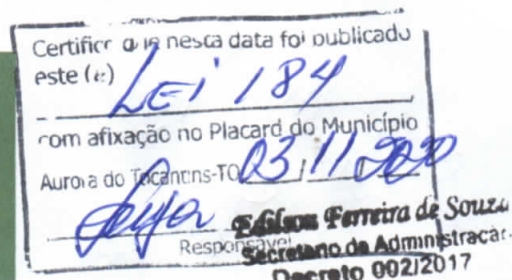 Certifico que nesta data foi publicado
este (e)
LEI 184
com afixação no Placard do Município
Aurora do Tocantins-TO 03/11/2020
Edilson Ferreira de Souza
Responsável
Secretario de Administração
Decreto 002/2017